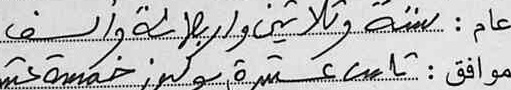 عام : ستة وثلاثين واربعمائة وألف
موافق : تاسع عشرة يوليوز خمسة عشر